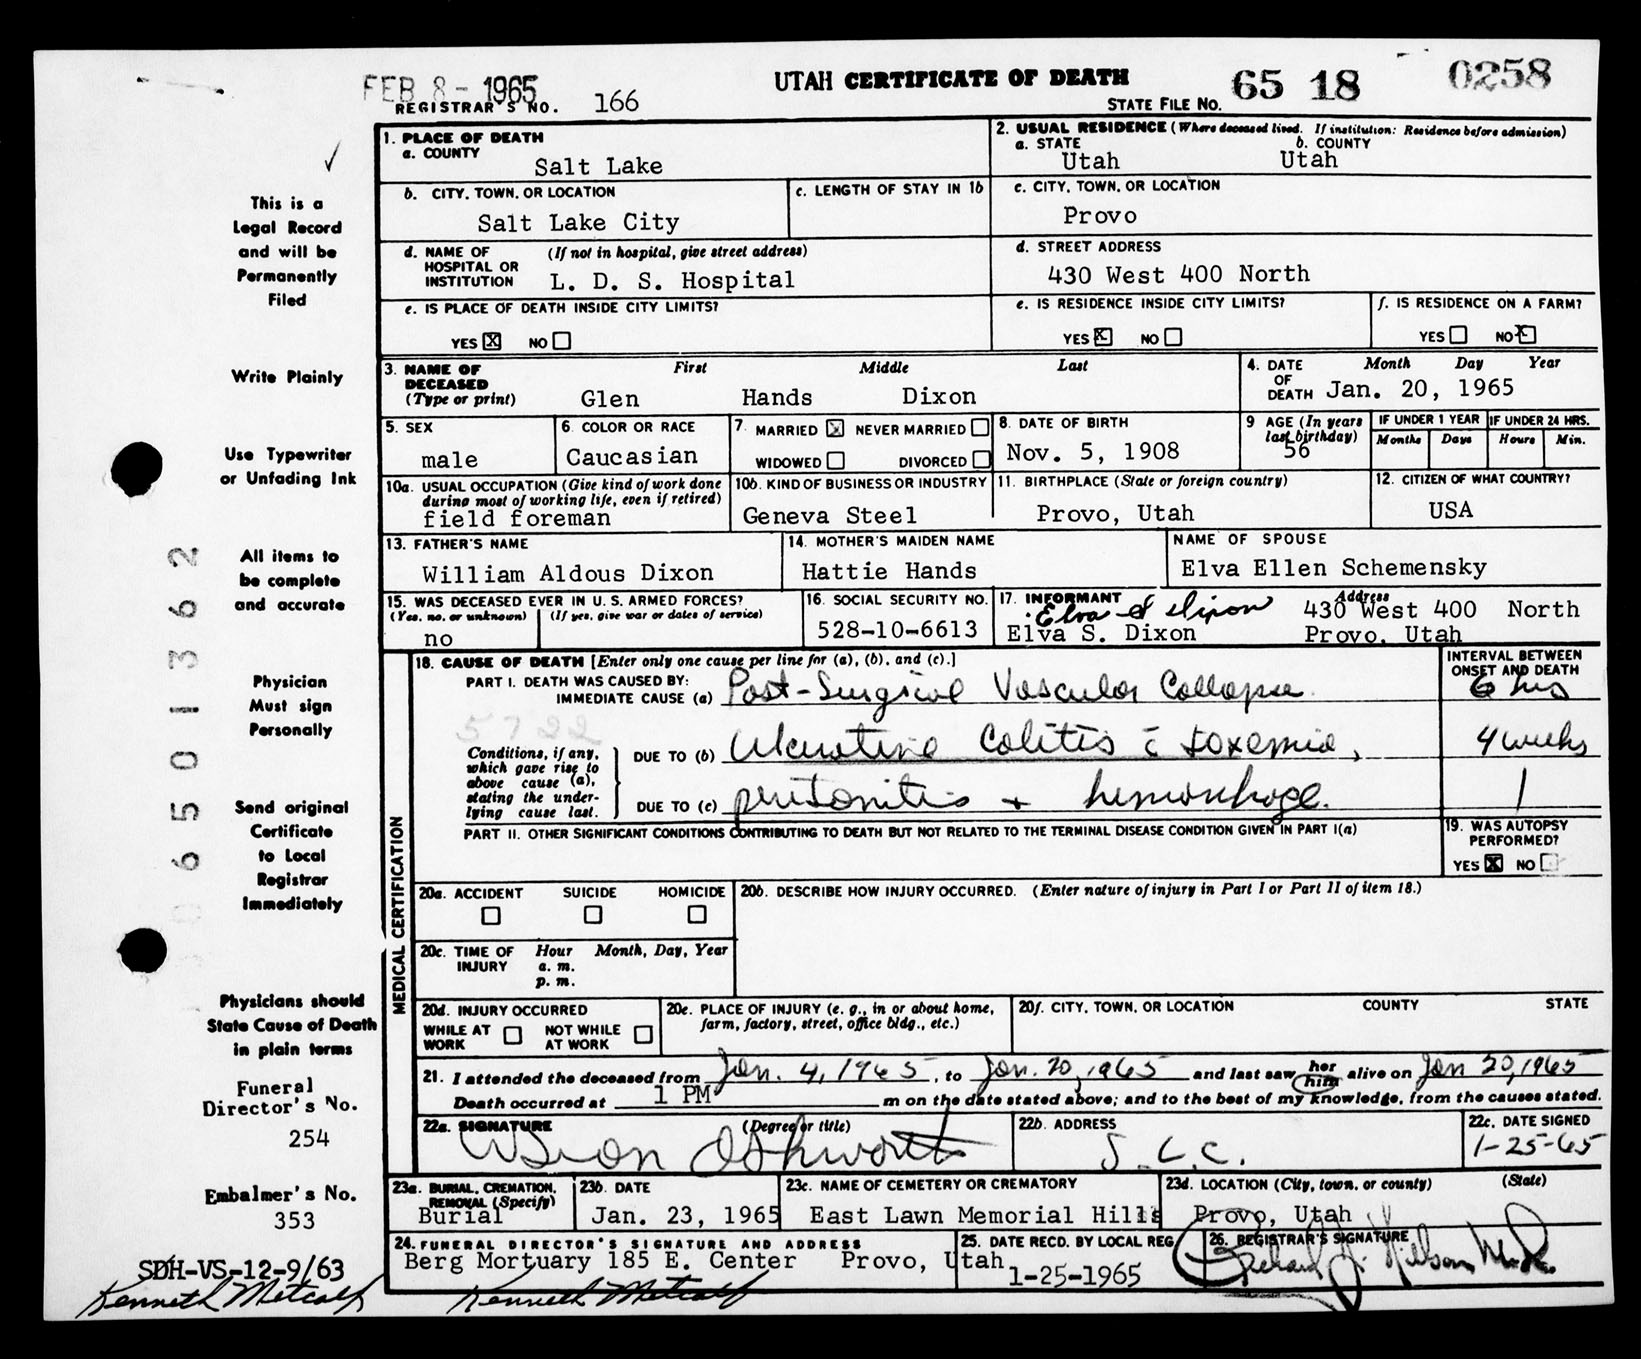 FEB 8 - 1965
UTAH CERTIFICATE OF DEATH
REGISTRAR'S NO. 166
STATE FILE NO. 65 18 0258
1. PLACE OF DEATH
a. COUNTY
Salt Lake
2. USUAL RESIDENCE (Where deceased lived. If institution: Residence before admission)
a. STATE b. COUNTY
Utah Utah
b. CITY, TOWN, OR LOCATION
Salt Lake City
c. LENGTH OF STAY IN 1b
c. CITY, TOWN, OR LOCATION
Provo
d. NAME OF HOSPITAL OR INSTITUTION (If not in hospital, give street address)
L. D. S. Hospital
d. STREET ADDRESS
430 West 400 North
e. IS PLACE OF DEATH INSIDE CITY LIMITS?
YES X NO
e. IS RESIDENCE INSIDE CITY LIMITS?
YES X NO
f. IS RESIDENCE ON A FARM?
YES NO X
3. NAME OF DECEASED (Type or print)
First Middle Last
Glen Hands Dixon
4. DATE OF DEATH Month Day Year
Jan. 20, 1965
5. SEX
male
6. COLOR OR RACE
Caucasian
7. MARRIED X NEVER MARRIED
WIDOWED DIVORCED
8. DATE OF BIRTH
Nov. 5, 1908
9 AGE (In years last birthday)
56
IF UNDER 1 YEAR IF UNDER 24 HRS.
Months Days Hours Min.
10a. USUAL OCCUPATION (Give kind of work done during most of working life, even if retired)
field foreman
10b. KIND OF BUSINESS OR INDUSTRY
Geneva Steel
11. BIRTHPLACE (State or foreign country)
Provo, Utah
12. CITIZEN OF WHAT COUNTRY?
USA
13. FATHER'S NAME
William Aldous Dixon
14. MOTHER'S MAIDEN NAME
Hattie Hands
NAME OF SPOUSE
Elva Ellen Schemensky
15. WAS DECEASED EVER IN U. S. ARMED FORCES?
(Yes, no, or unknown) (If yes, give war or dates of service)
no
16. SOCIAL SECURITY NO.
528-10-6613
17. INFORMANT Address
Elva S Dixon 430 West 400 North
Elva S. Dixon Provo, Utah
MEDICAL CERTIFICATION
18. CAUSE OF DEATH [Enter only one cause per line for (a), (b), and (c).]
INTERVAL BETWEEN ONSET AND DEATH
PART I. DEATH WAS CAUSED BY:
IMMEDIATE CAUSE (a) Post-Surgical Vascular Collapse 6 hrs
5722
Conditions, if any, which gave rise to above cause (a), stating the underlying cause last.
DUE TO (b) Ulcerative Colitis c̄ toxemia, 4 weeks
DUE TO (c) peritonitis + hemorrhage.
PART II. OTHER SIGNIFICANT CONDITIONS CONTRIBUTING TO DEATH BUT NOT RELATED TO THE TERMINAL DISEASE CONDITION GIVEN IN PART I(a)
19. WAS AUTOPSY PERFORMED?
YES X NO
20a. ACCIDENT SUICIDE HOMICIDE
20b. DESCRIBE HOW INJURY OCCURRED. (Enter nature of injury in Part I or Part II of item 18.)
20c. TIME OF INJURY Hour Month, Day, Year
a. m.
p. m.
20d. INJURY OCCURRED
WHILE AT WORK NOT WHILE AT WORK
20e. PLACE OF INJURY (e. g., in or about home, farm, factory, street, office bldg., etc.)
20f. CITY, TOWN, OR LOCATION COUNTY STATE
21. I attended the deceased from Jan. 4, 1965, to Jan. 20, 1965 and last saw her him alive on Jan 20, 1965
Death occurred at 1 PM m on the date stated above; and to the best of my knowledge, from the causes stated.
22a. SIGNATURE (Degree or title)
22b. ADDRESS
S. L. C.
22c. DATE SIGNED
1-25-65
23a. BURIAL, CREMATION, REMOVAL (Specify)
Burial
23b. DATE
Jan. 23, 1965
23c. NAME OF CEMETERY OR CREMATORY
East Lawn Memorial Hills
23d. LOCATION (City, town, or county) (State)
Provo, Utah
24. FUNERAL DIRECTOR'S SIGNATURE AND ADDRESS
Berg Mortuary 185 E. Center Provo, Utah
Kenneth Metcalf
25. DATE RECD. BY LOCAL REG.
1-25-1965
26. REGISTRAR'S SIGNATURE
This is a
Legal Record
and will be
Permanently
Filed
Write Plainly
Use Typewriter
or Unfading Ink
All items to
be complete
and accurate
Physician
Must sign
Personally
Send original
Certificate
to Local
Registrar
Immediately
Physicians should
State Cause of Death
in plain terms
Funeral
Director's No.
254
Embalmer's No.
353
SDH-VS-12-9/63
Kenneth Metcalf
65 01362